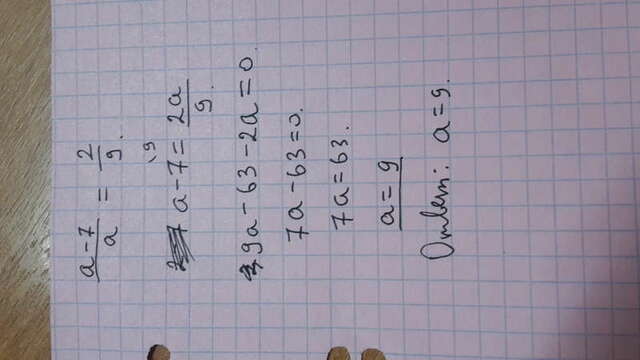 a-7/a = 2/9.
\9
a-7= 2a/9.
9a-63-2a=0.
7a-63=0.
7a=63.
a=9
Ответ: a=9.